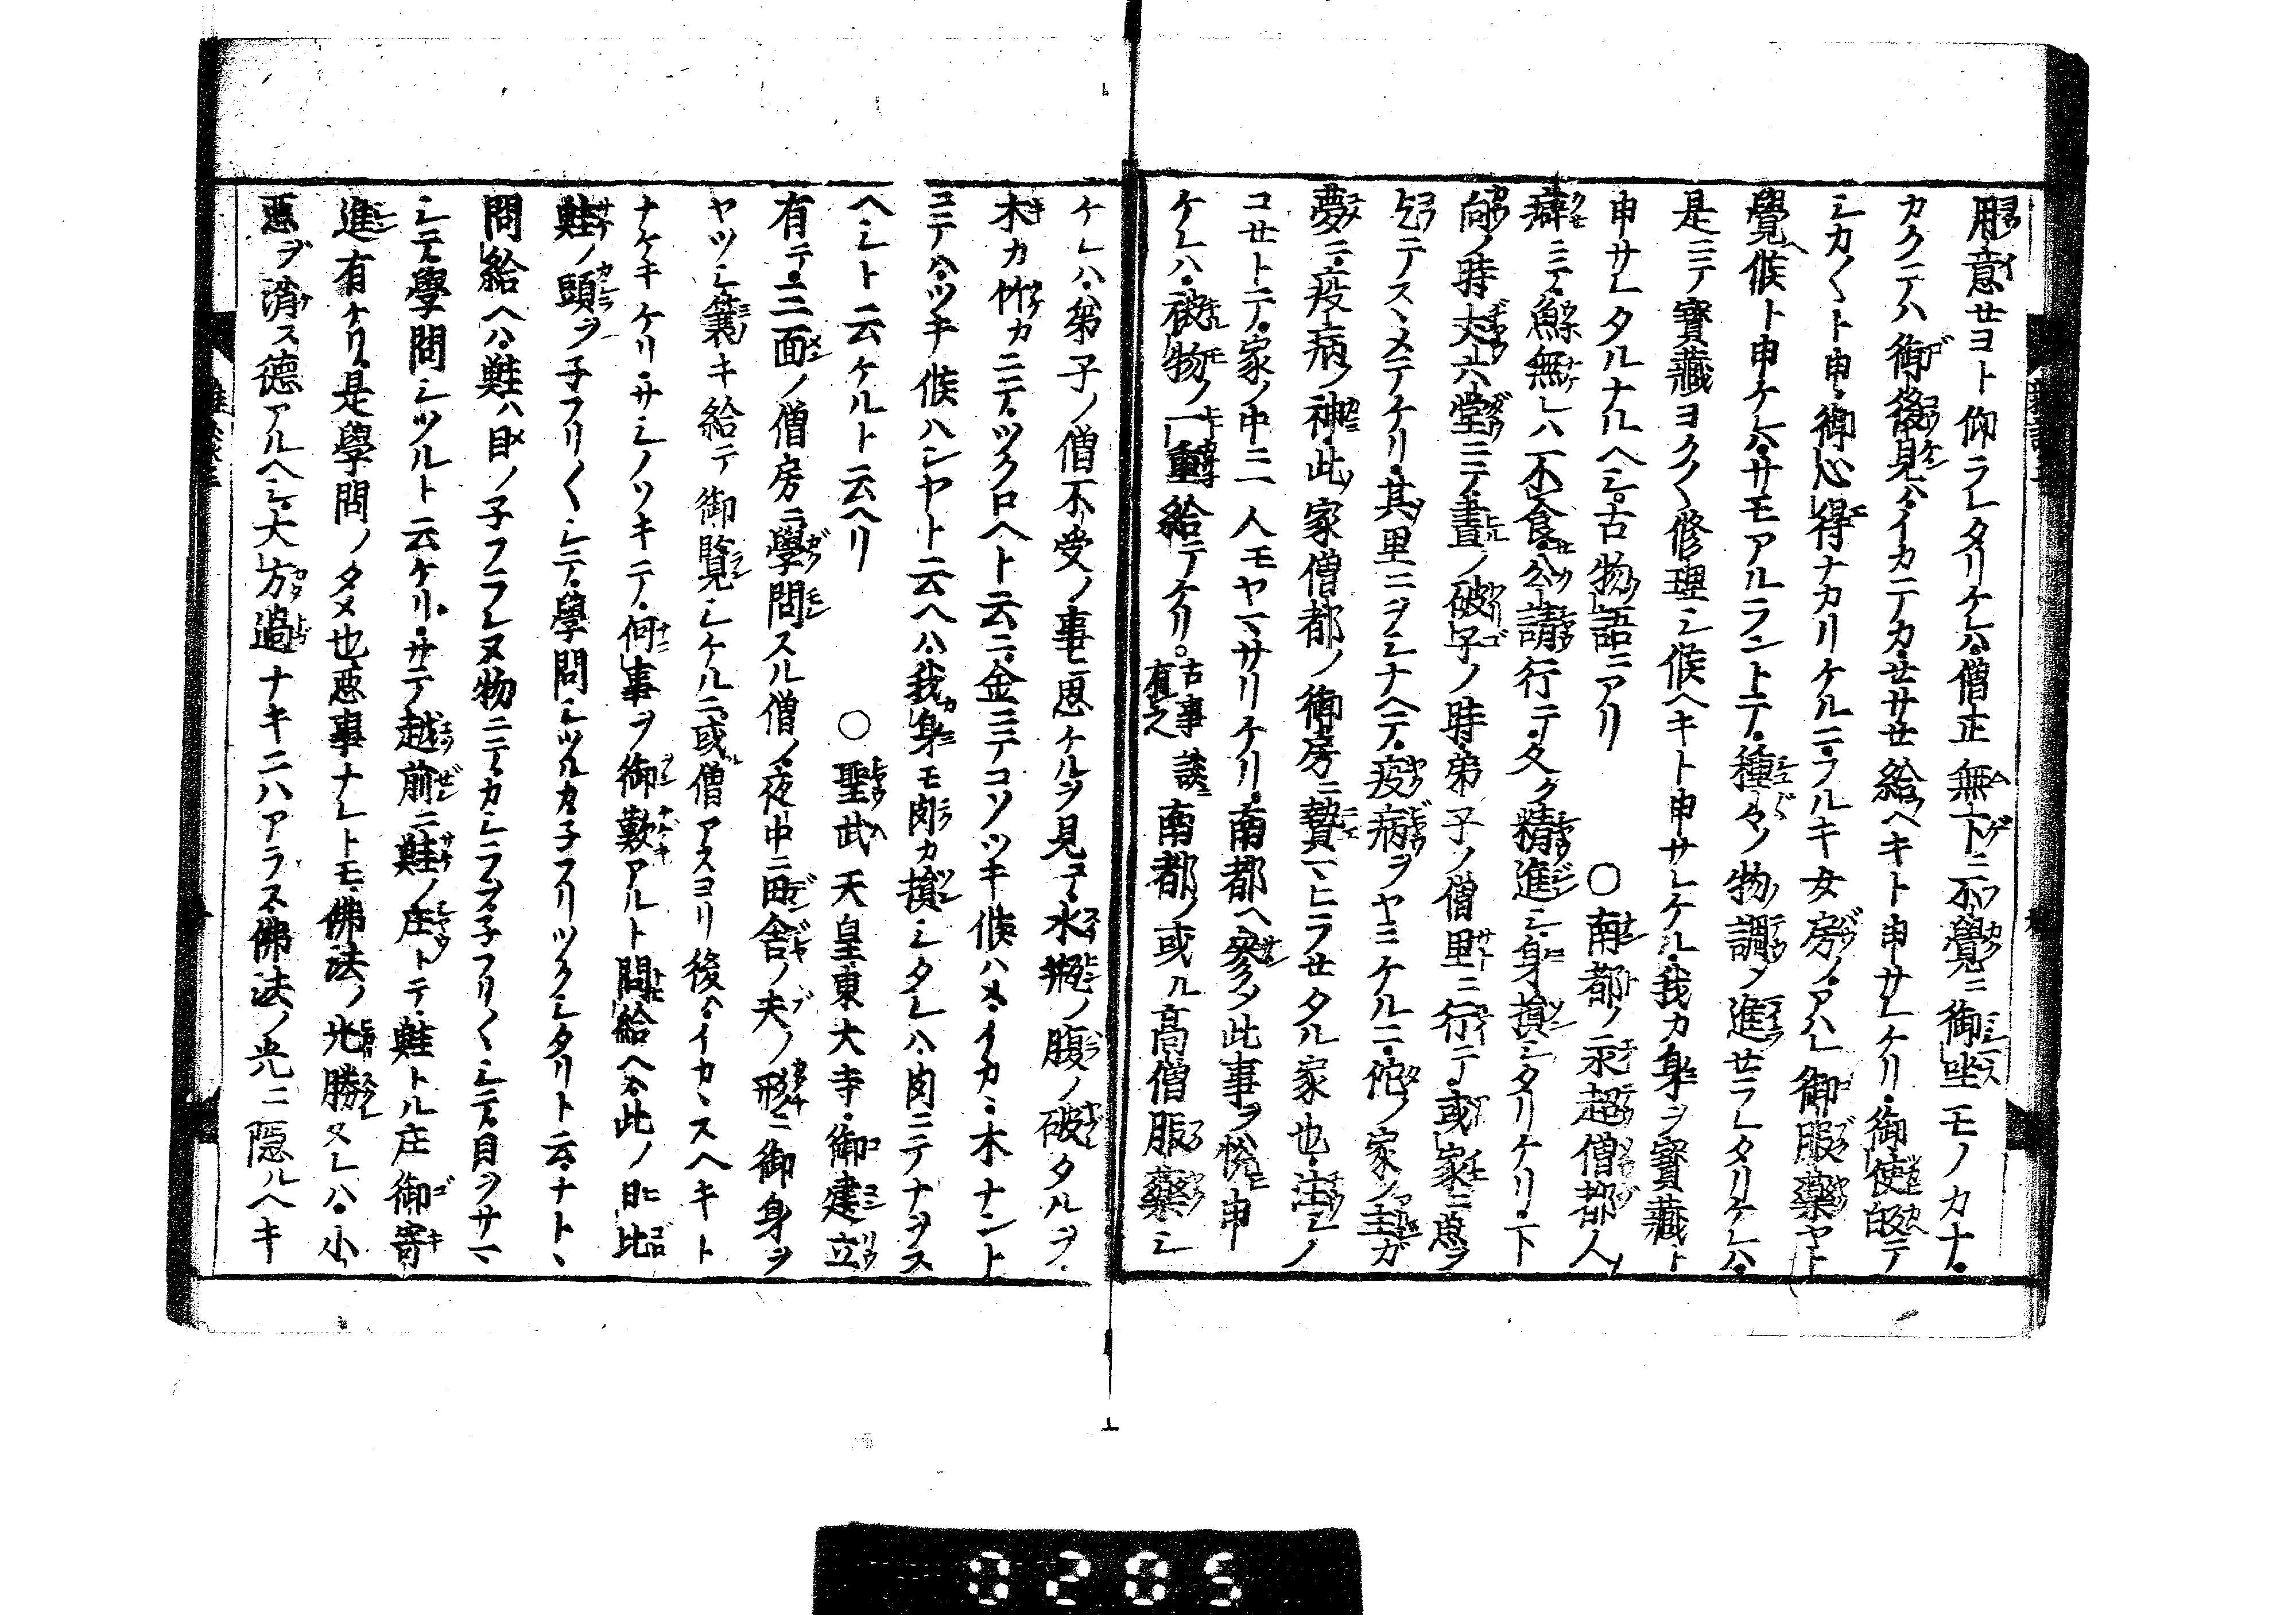 用意セヨト仰ラレタリケレハ僧正無下ニ不覺ニ御坐モノカナ
カクテハ御後見ハイカニテカセサセ給ヘキト申サレケリ御使皈テ
シカ〱ト申御心得ナカリケルニフルキ女房ノアハレ御服藥ヤト
覺候ト申ケレハサモアルラントテ種々ノ物調メ進セラレタリケレハ
是ニテ寳藏ヨク〱修理シ候ヘキト申サレケル我カ身ヲ寳藏ト
申サレタルナルヘシ古物語ニアリ　○南都ノ永超僧都人ノ
癖ニテ魚無レハ不食公請行テ久ク精進シ身損シタリケリ下
向ノ時丈六堂ニテ晝ノ破子ノ時弟子ノ僧里ニ行テ或家ニ魚ヲ
乞テスヽメテケリ其里ニヲシナヘテ疫病ヲヤミケルニ他ノ家ノ主ガ
夢ニ疫病ノ神此家僧都ノ御房ニ贄マヒラセタル家也注シノ
コセトテ家ノ中ニ一人モヤマサリケリ南都ヘ參タ此事ヲ悦申
ケレハ被物ノ一重給テケリ。古事談ニ有之 南都ノ或ル高僧服藥シ
ケレハ弟子ノ僧不受ノ事ニ思ケルヲ見テ水瓶ノ腹ノ破タルヲ
木カ竹カニテツクロヘト云ニ金ニテコソツキ候ハメイカニ木ナント
ニテハツキ候ハンヤト云ヘハ我身モ肉カ損シタレハ肉ニテナヲス
ヘシト云ケルト云ヘリ　○聖武天皇東大寺御建立
有テ三面ノ僧房ニ學問スル僧ノ夜中ニ田舎ノ夫ノ形ニ御身ヲ
ヤツシ簔キ給テ御覽シケルニ或僧アスヨリ後ハイカヽスヘキト
ナケキケリサシノツキテ何事ヲ御歎アルト問給ヘハ此ノ日比
鮭ノ頭ヲ子フリ〱シテ學問シツルカ子フリツクシタリト云ナトヽ
問給ヘハ鮭ハ目ノ子フラレヌ物ニテカシラヲ子フリ〱シテ目ヲサマ
シテ學問シツルト云ケリサテ越前ニ鮭ノ庄トテ鮭トル庄御寄
進有ケリ是學問ノタメ也惡事ナレトモ佛法ノ光勝ヌレハ小
惡ヲ消ス德アルヘシ大方過ナキニハアラス佛法ノ光ニ隱ルヘキ
0205